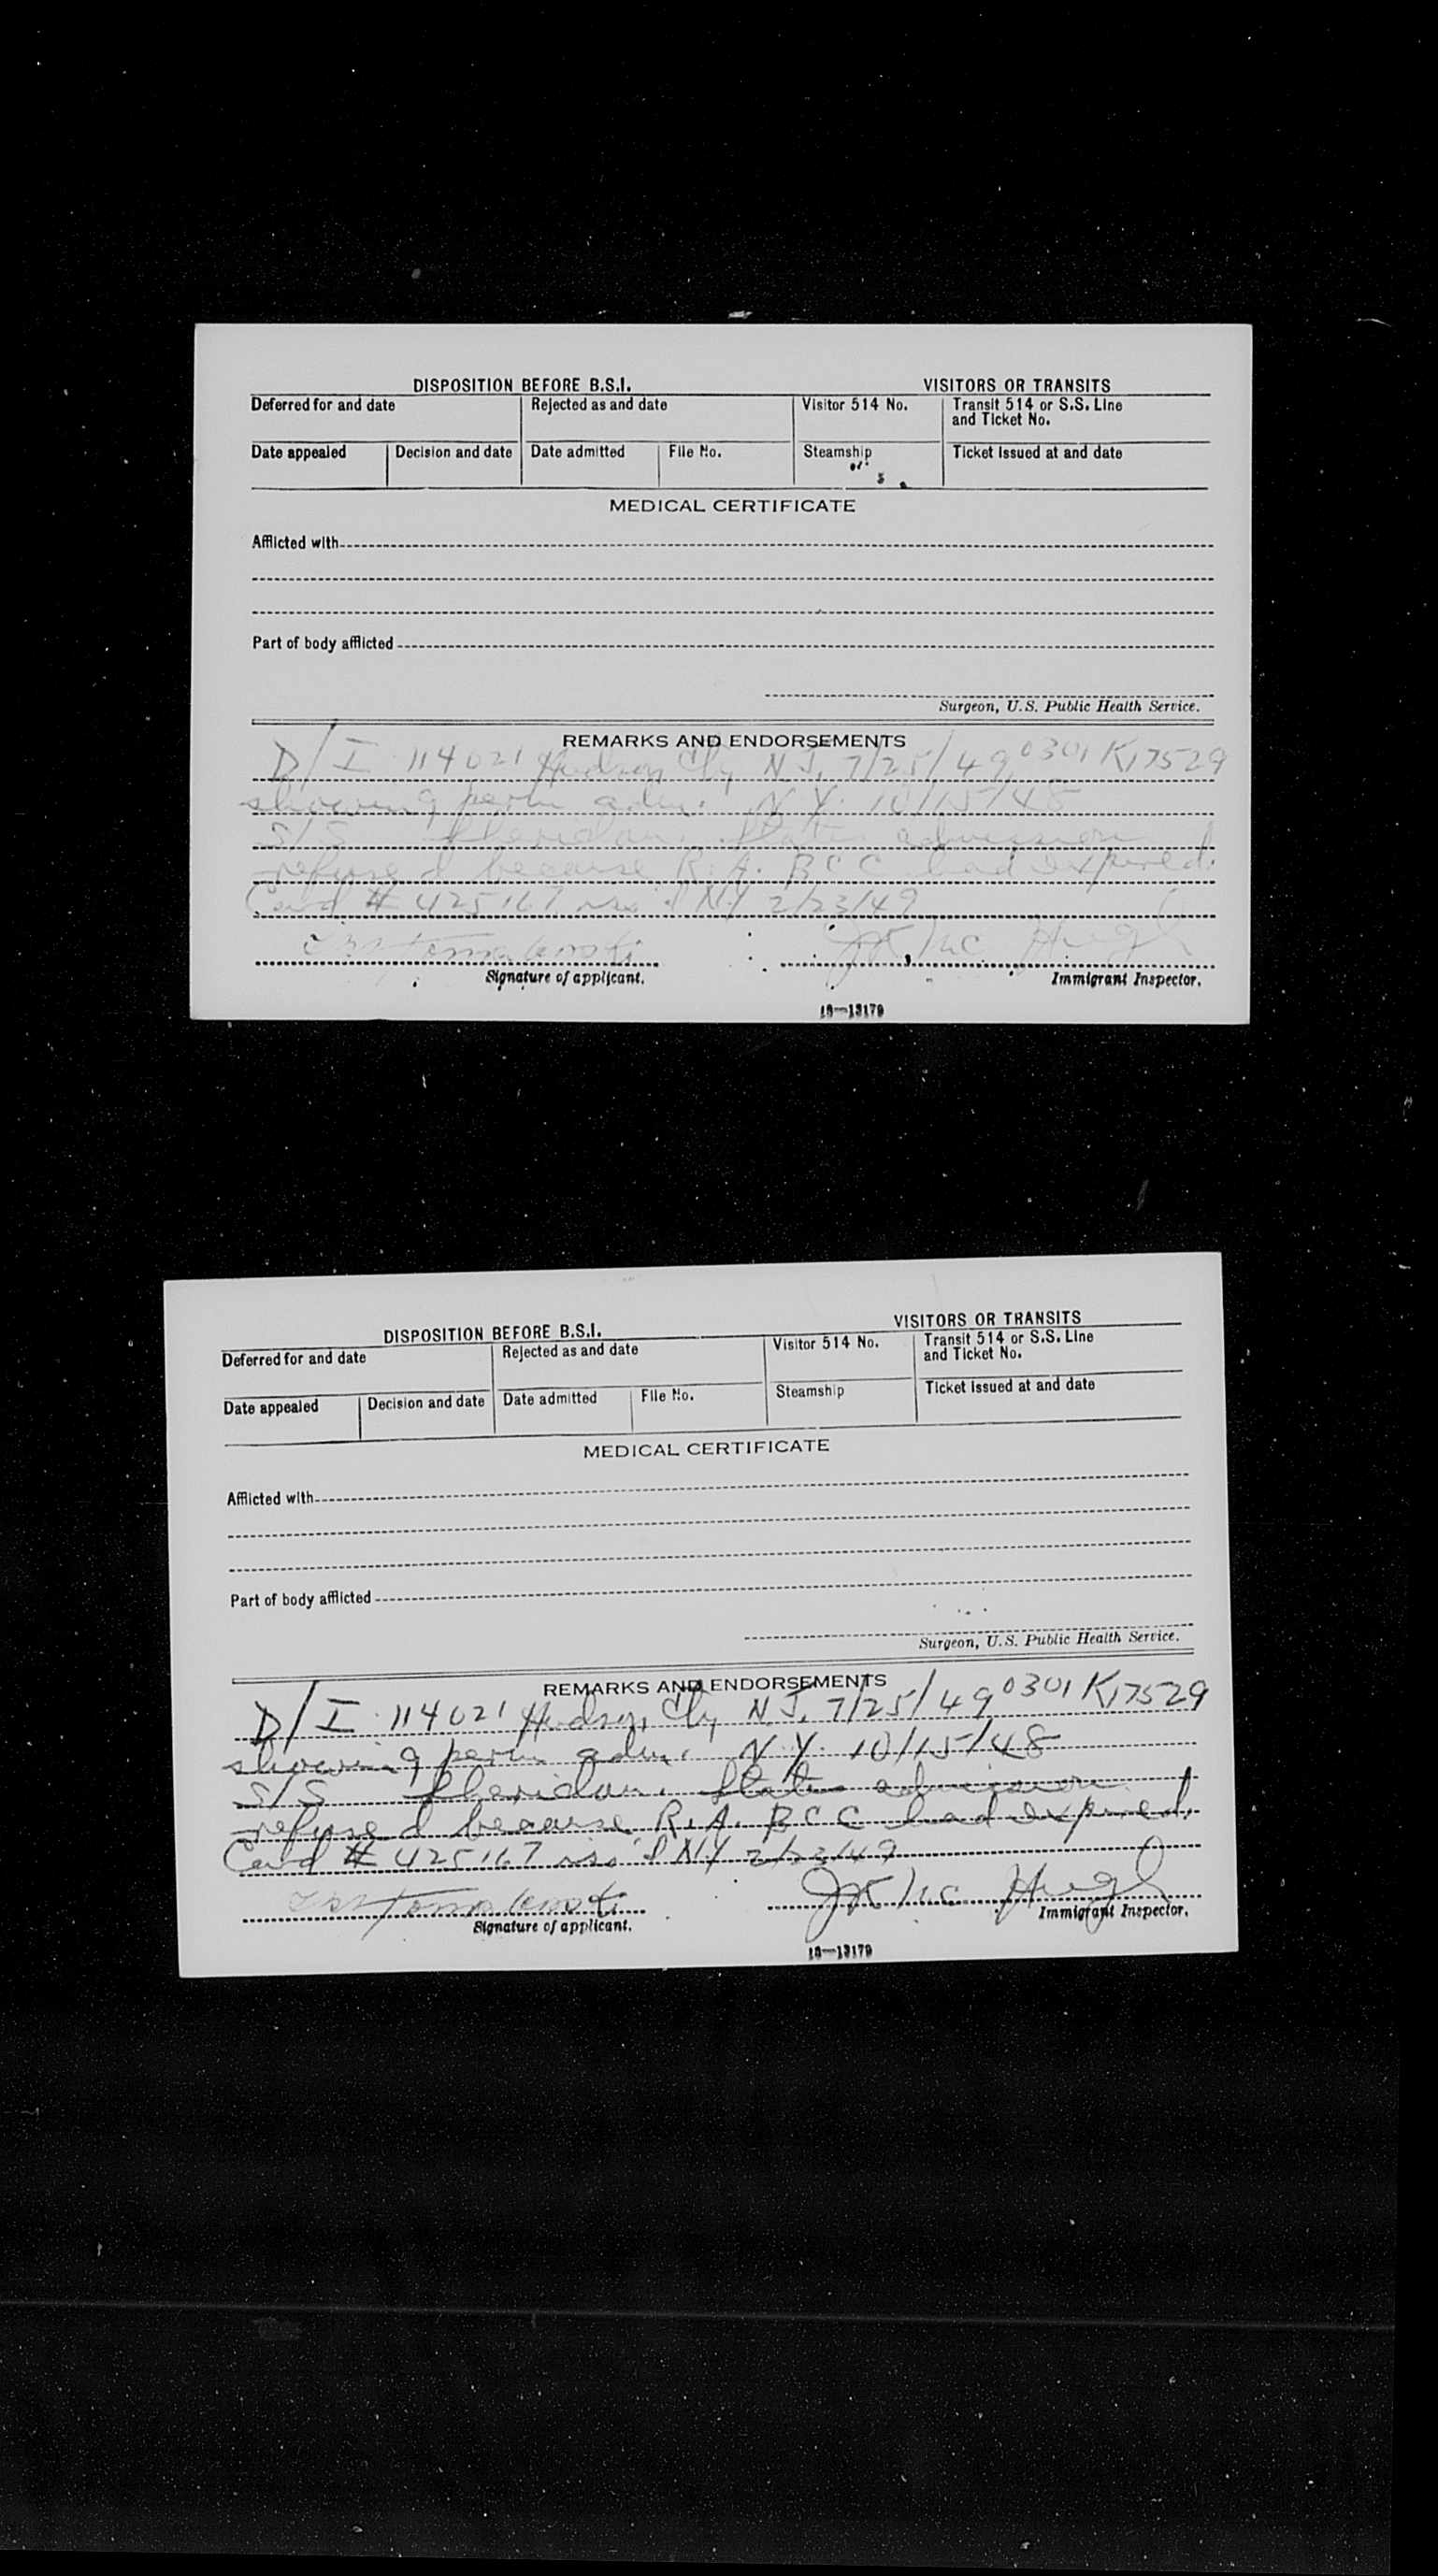 DISPOSITION BEFORE B.S.I. VISITORS OR TRANSITS
Deferred for and date Rejected as and date Visitor 514 No. Transit 514 or S.S. Line
and Ticket No.
Date appealed Decision and date Date admitted File No. Steamship Ticket issued at and date
MEDICAL CERTIFICATE
Afflicted with
Part of body afflicted
Surgeon, U.S. Public Health Service.
REMARKS AND ENDORSEMENTS
D/I 114021 Hudson Cty N.J. 7/25/49 0301 K17529
showing perm adm. N.Y. 10/15/48
S/S Sheridan. States admission
refused because R.A. BCC had expired.
Card # 425167 iss'd NY 2/23/49
Signature of applicant. Immigrant Inspector.
16—13179
DISPOSITION BEFORE B.S.I. VISITORS OR TRANSITS
Deferred for and date Rejected as and date Visitor 514 No. Transit 514 or S.S. Line
and Ticket No.
Date appealed Decision and date Date admitted File No. Steamship Ticket issued at and date
MEDICAL CERTIFICATE
Afflicted with
Part of body afflicted
Surgeon, U.S. Public Health Service.
REMARKS AND ENDORSEMENTS
D/I 114021 Hudson Cty N.J. 7/25/49 0301 K17529
showing perm adm. N.Y. 10/15/48
S/S Sheridan. States admission
refused because R.A. BCC had expired.
Card # 425167 iss'd NY 2/23/49
Signature of applicant. Immigrant Inspector.
16—13179